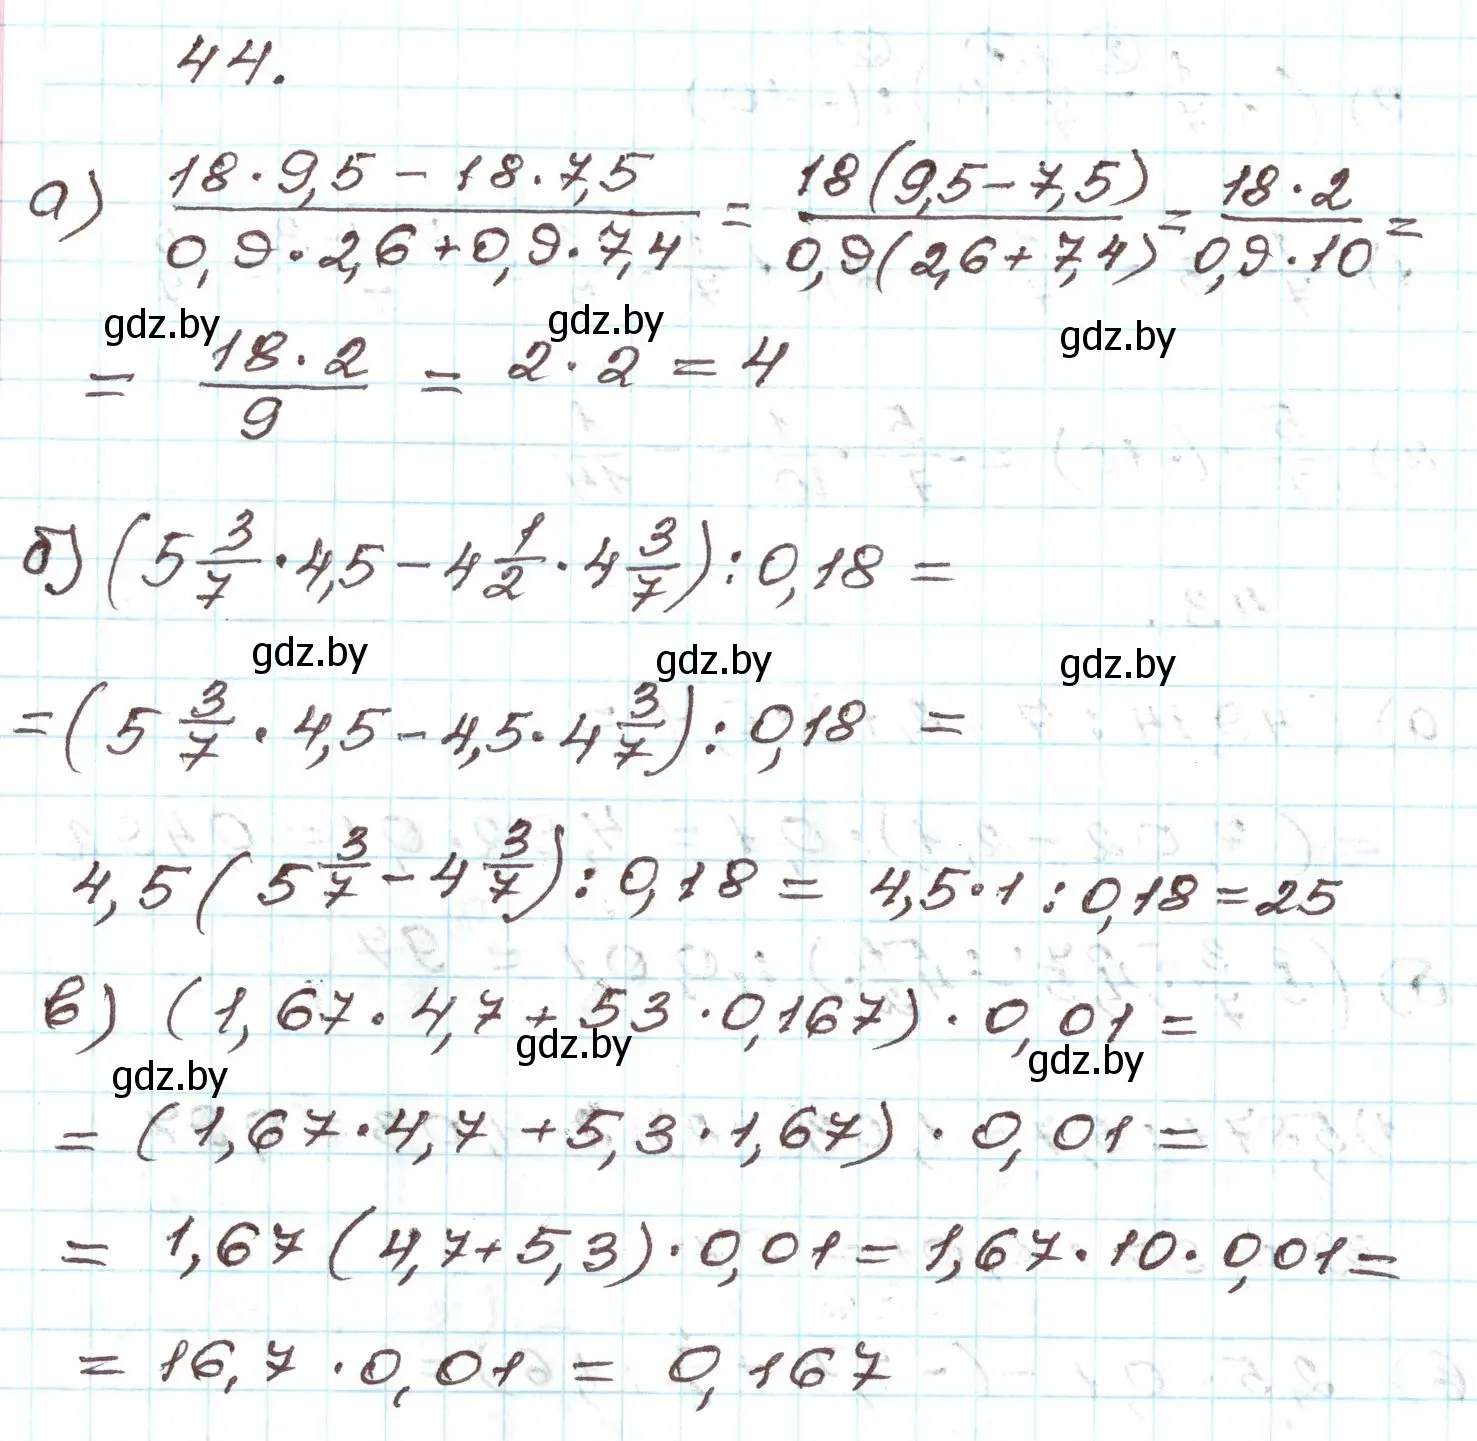 44.
а) (18·9,5−18·7,5)/(0,9·2,6+0,9·7,4) = 18(9,5−7,5)/0,9(2,6+7,4) = 18·2/0,9·10 =
gdz.by gdz.by gdz.by
= 18·2/9 = 2·2 = 4
б) (5 3/7 · 4,5 − 4 1/2 · 4 3/7) : 0,18 =
gdz.by gdz.by gdz.by
= (5 3/7 · 4,5 − 4,5 · 4 3/7) : 0,18 =
4,5 (5 3/7 − 4 3/7) : 0,18 = 4,5·1 : 0,18 = 25
в) (1,67·4,7 + 53·0,167) · 0,01 =
gdz.by gdz.by gdz.by
= (1,67·4,7 + 5,3·1,67) · 0,01 =
= 1,67 (4,7+5,3) · 0,01 = 1,67·10·0,01 =
= 16,7·0,01 = 0,167